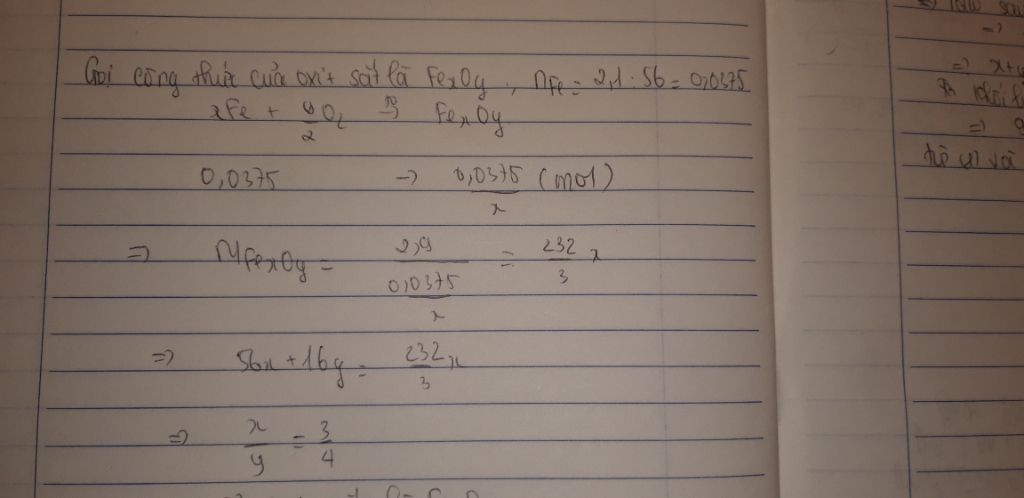 Gọi công thức của oxit sắt là FexOy, nFe = 2,1 : 56 = 0,0375
xFe + y/2 O2 t° → FexOy
0,0375 → 0,0375/x (mol)
=> MFexOy = 2,9 / (0,0375/x) = 232/3 x
=> 56x + 16y = 232/3 x
=> x/y = 3/4
=>
=> x+
=>